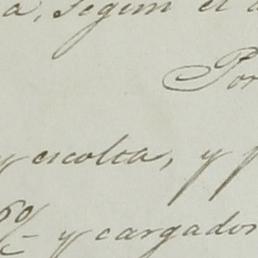 a, segun el a
Por
y escolta, y p
y cargador